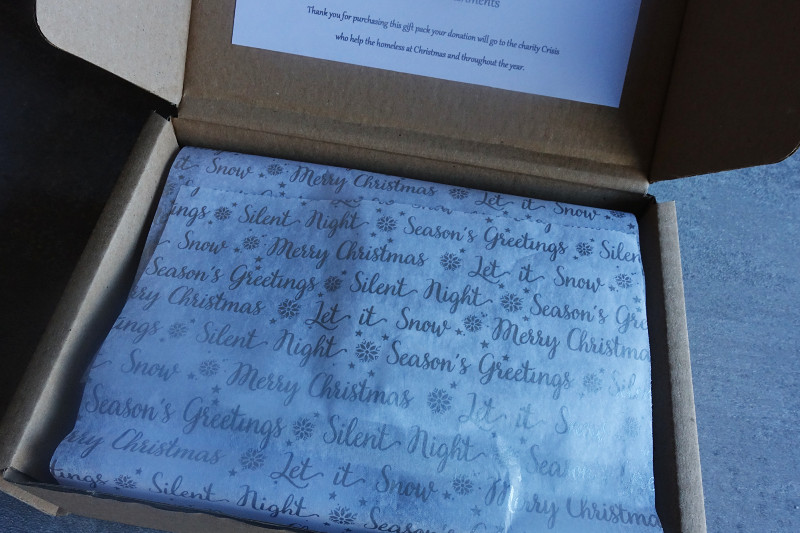 Thank you for purchasing this gift pack your donation will go to the charity Crisis
who help the homeless at Christmas and throughout the year.
it Snow Merry Christmas Let it Snow
Silent Night Season's Greetings Silent
Snow Merry Christmas Let it Snow
Season's Greetings Silent Night Season's
Christmas Let it Snow Merry Christmas
Silent Night Season's Greetings
Snow Merry Christmas Let it
Season's Greetings Silent Night
Christmas Let it Snow Merry Christmas
Silent Night Season's